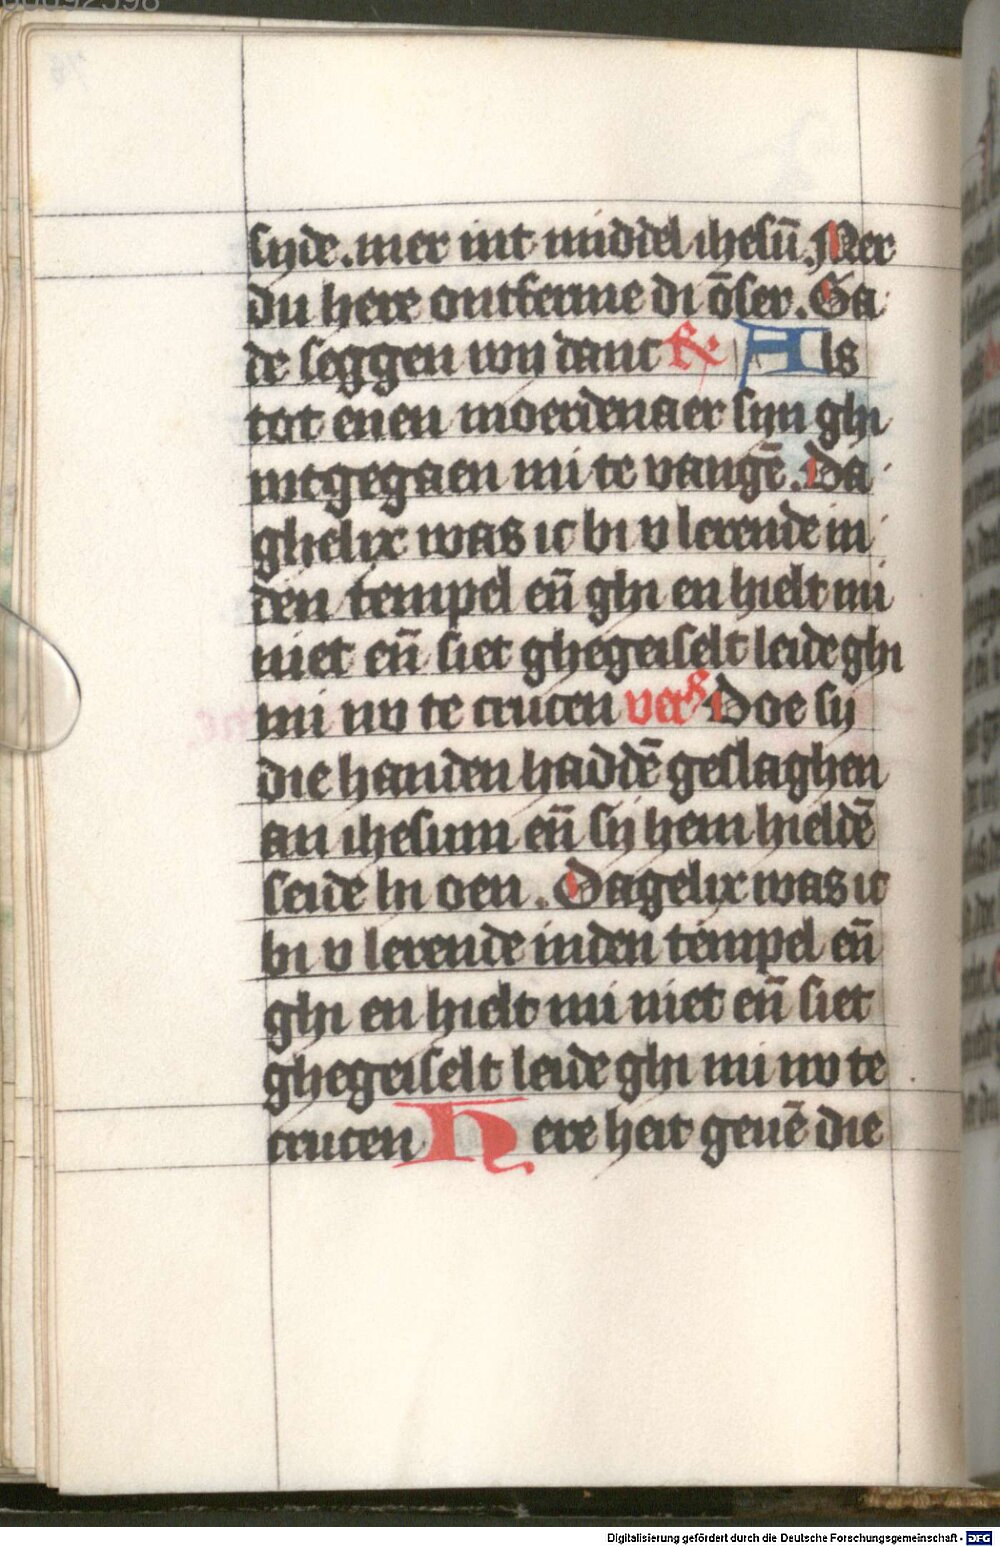 syde. mer int middel ihesū. Mer
du here ontferme di ōser. Ga
de seggen wy danc R. Als
tot enen moerdenaer syn ghi
wtgegaen mi te vangē. Da
ghelix was ic bi v lerende in
den tempel eñ ghi en hielt mi
niet eñ siet ghegeiselt leide ghi
mi nv te crucen vers Doe sy
die handen haddē geslaghen
an ihesum eñ sy hem hieldē
seide hi oen. Dagelix was ic
bi v lerende inden tempel eñ
ghi en hielt mi niet eñ siet
ghegeiselt leide ghi mi nv te
crucen Here heit geuē die
Digitalisierung gefördert durch die Deutsche Forschungsgemeinschaft - DFG